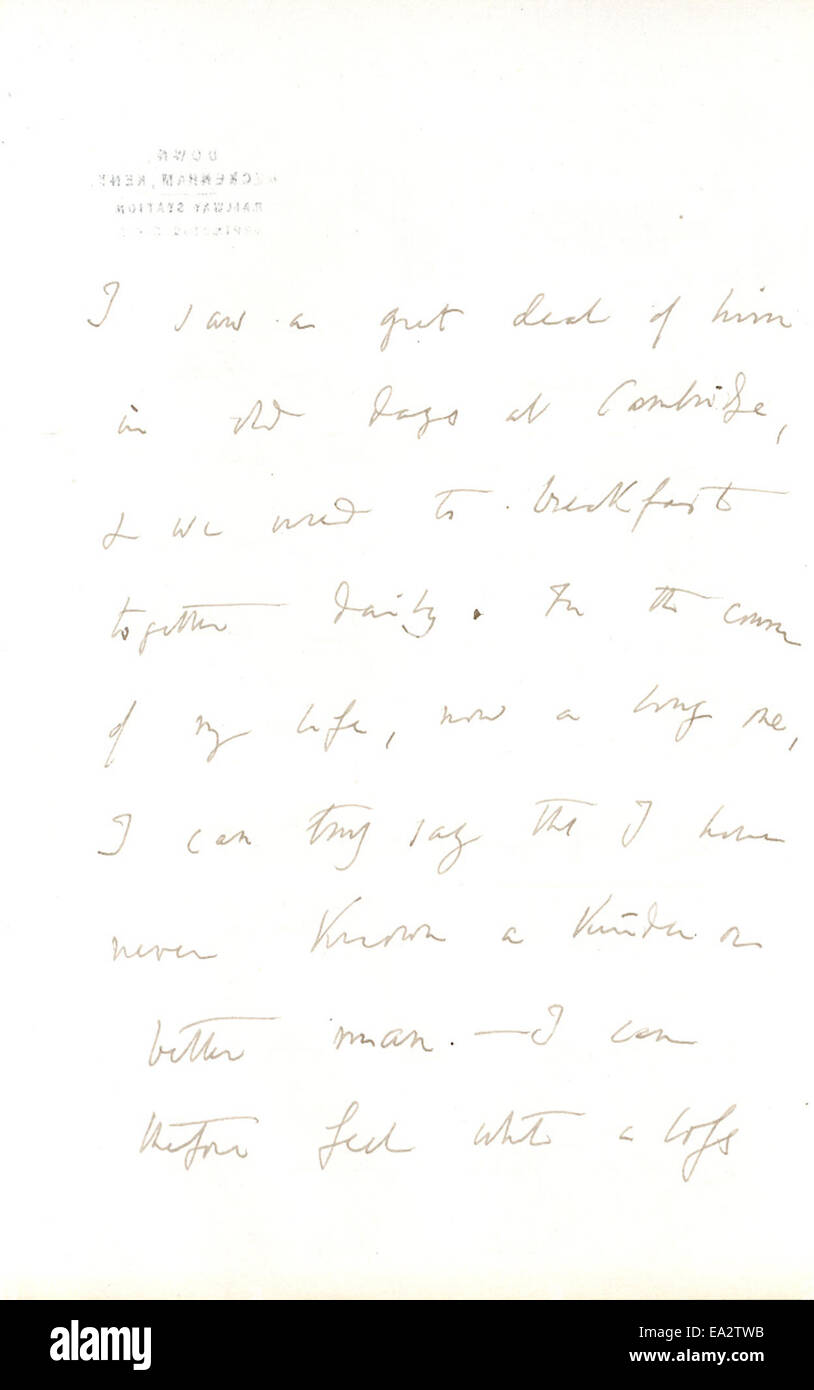 DOWN,
BECKENHAM, KENT.
RAILWAY STATION
ORPINGTON. S.E.R.
I saw a great deal of him
in old days at Cambridge,
& we used to breakfast
together daily. In the course
of my life, now a long one,
I can truly say that I have
never known a kinder or
better man. — I can
therefore feel what a loss
alamy
Image ID: EA2TWB
www.alamy.com